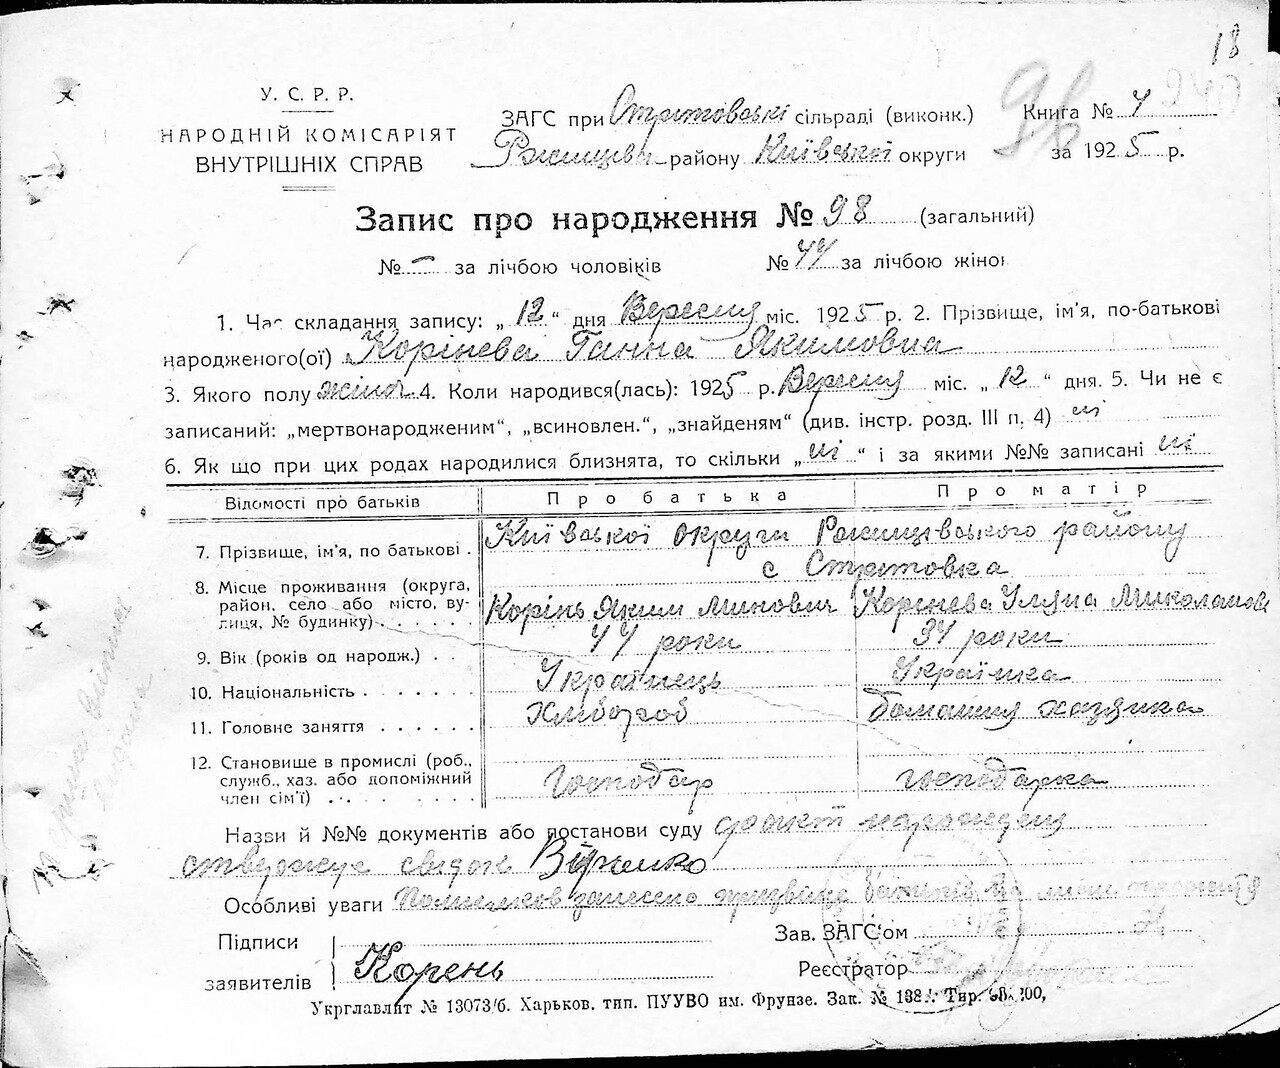 18
У. С. Р. Р.
НАРОДНІЙ КОМІСАРІЯТ
ВНУТРІШНІХ СПРАВ
ЗАГС при Стритовські сільраді (виконк.)
Ржищева району Київської округи
98
Книга № 4
240
за 1925 р.
Запис про народження № 98 (загальний)
№ – за лічбою чоловіків № 44 за лічбою жіно
1. Час складання запису: „ 12 “ дня Вересня міс. 1925 р. 2. Прізвище, ім'я, по-батькові
народженого(ої) Корінева Ганна Якимовна
3. Якого полу жіноч. 4. Коли народився(лась): 1925 р. Вересня міс. „ 12 “ дня. 5. Чи не є
записаний: „мертвонародженим“, „всиновлен.“, „знайденям“ (див. інстр. розд. III п. 4) ні
6. Як що при цих родах народилися близнята, то скільки „ ні “ і за якими №№ записані ні
Відомості про батьків Про батька Про матір
Київської округи Ржищівського району
7. Прізвище, ім'я, по батькові .
с Стритовка
8. Місце проживання (округа,
район, село або місто, ву-
лиця, № будинку) . . . . . .
Корінь Яким Минович Корінева Уляна Миколаївн
9. Вік (років од народж.) . . 44 роки 34 роки
10. Національність . . . . . . . Українець Українка
11. Головне заняття . . . . . . Хлібороб Домашня хазяйка
12. Становище в промислі (роб.,
служб., хаз. або допоміжний
член сім'ї) . . . . . . . . Господар господарка
Назви й №№ документів або постанови суду факт народження
стверджує свідок Вірченко
Особливі уваги Помилков занесено прізвище батьків на місці
Підписи
заявителів Корень
Зав. ЗАГС'ом
Реєстратор
Укрглавліт № 13073/б. Харьков, тип. ПУУВО им. Фрунзе. Зак. №